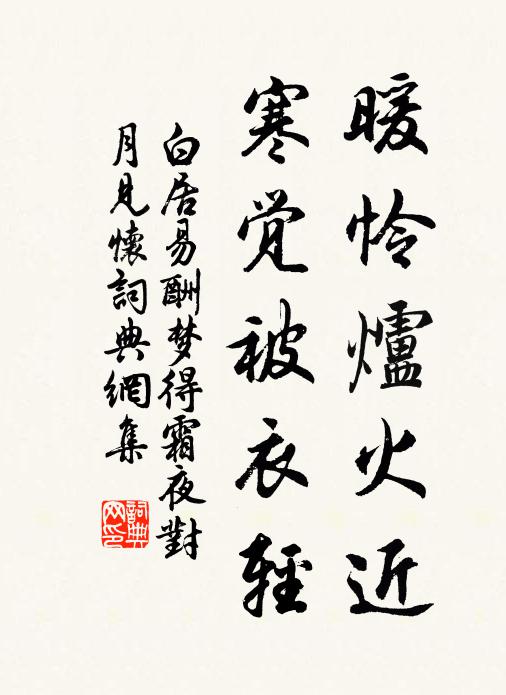 暖怜爐火近
寒觉被衣轻
白居易酬梦得霜夜對
月見懷詞典網集
詞典
网印